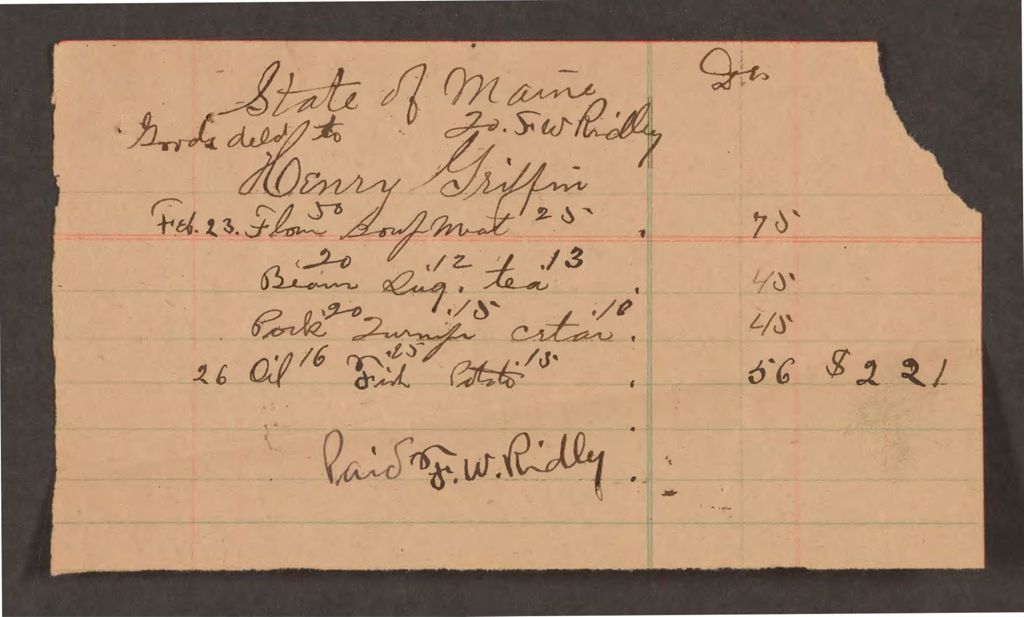 State of Maine Dr
Goods deld to To. F W Ridley
Henry Griffin
Feb. 23. Flour 50 Soup Meat 25 . 75
Beans 20 Sug. .12 tea .13 . 45
Pork 20 Turnip .15 .10 . 45
26 Oil 16 Fish .25 Potato .15 . 56 $2 21
Paid F. W. Ridley